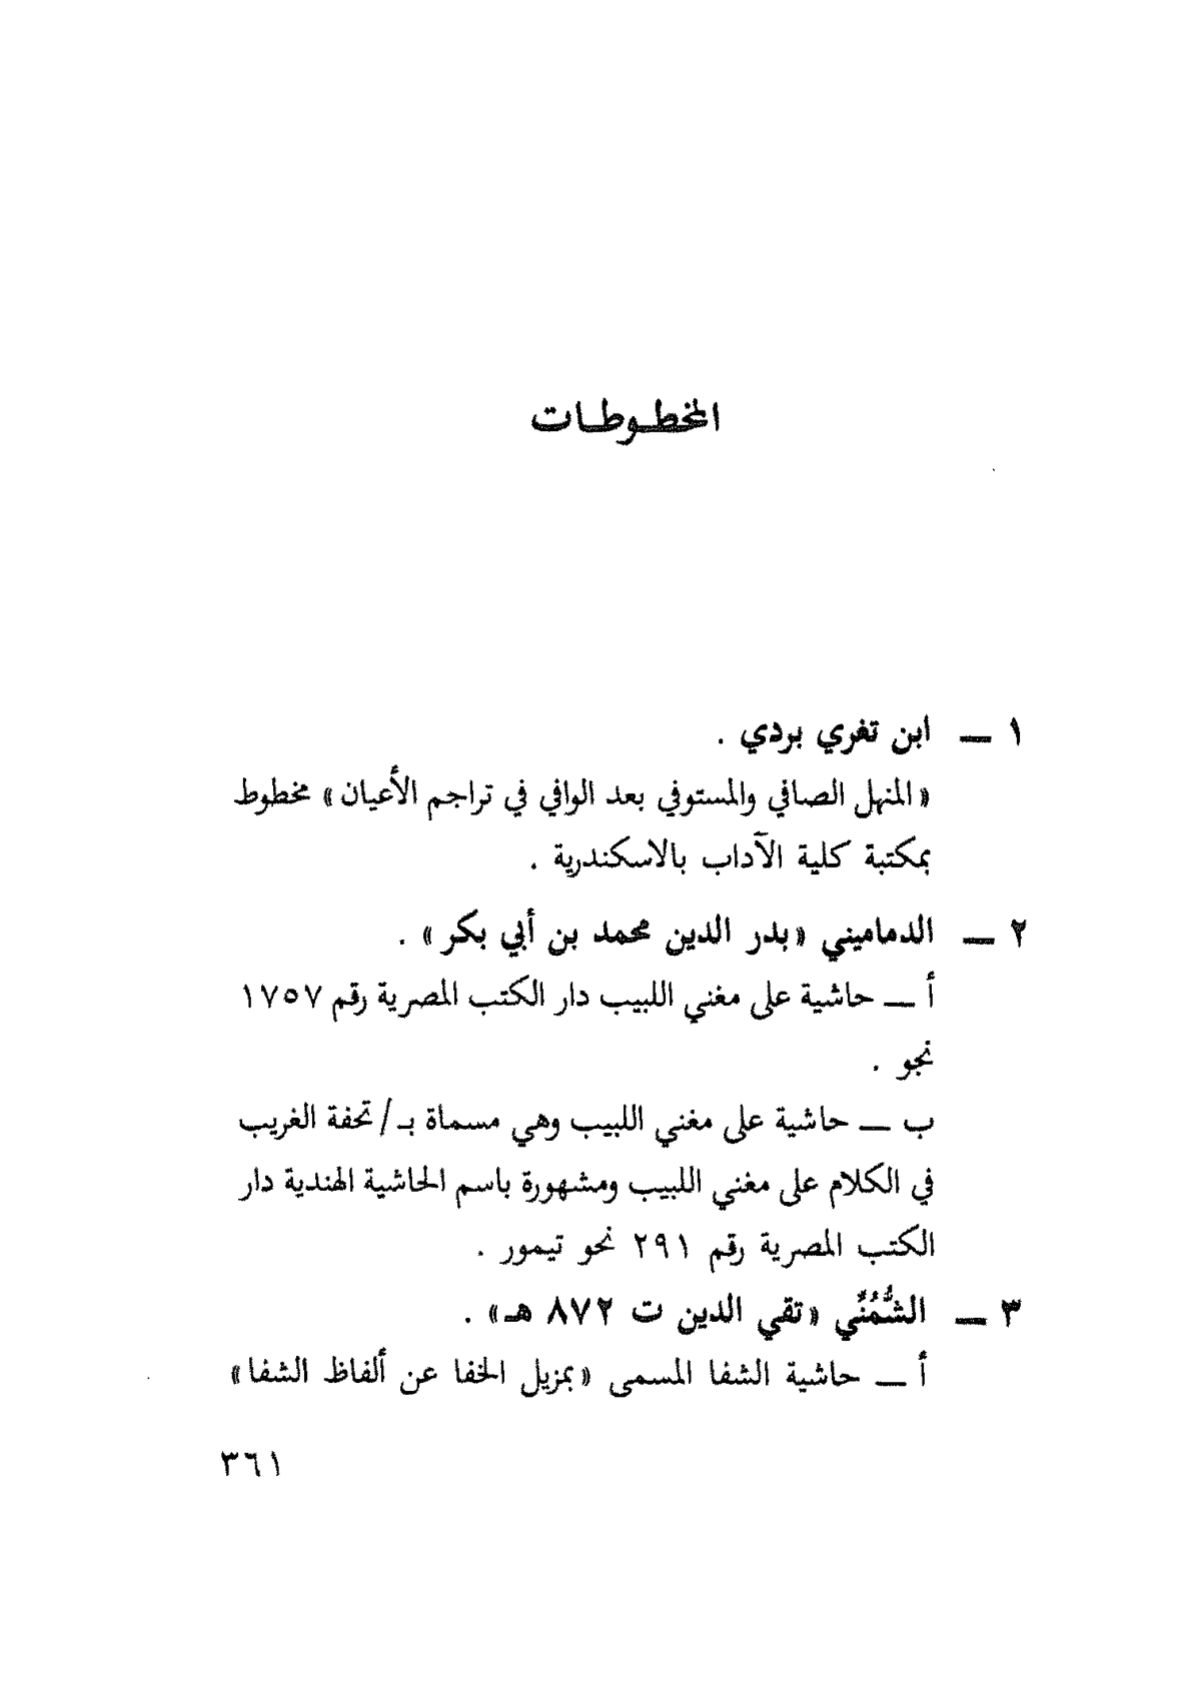 المخطوطات
١ — ابن تغري بردي .
«المنهل الصافي والمستوفي بعد الوافي في تراجم الأعيان» مخطوط
بمكتبة كلية الآداب بالاسكندرية .
٢ — الدماميني «بدر الدين محمد بن أبي بكر» .
أ — حاشية على مغني اللبيب دار الكتب المصرية رقم ١٧٥٧
نجو .
ب — حاشية على مغني اللبيب وهي مسماة بـ/تحفة الغريب
في الكلام على مغني اللبيب ومشهورة باسم الحاشية الهندية دار
الكتب المصرية رقم ٢٩١ نحو تيمور .
٣ — الشُّمُنِّي «تقي الدين ت ٨٧٢ هـ» .
أ — حاشية الشفا المسمى «بمزيل الخفا عن ألفاظ الشفا»
٣٦١